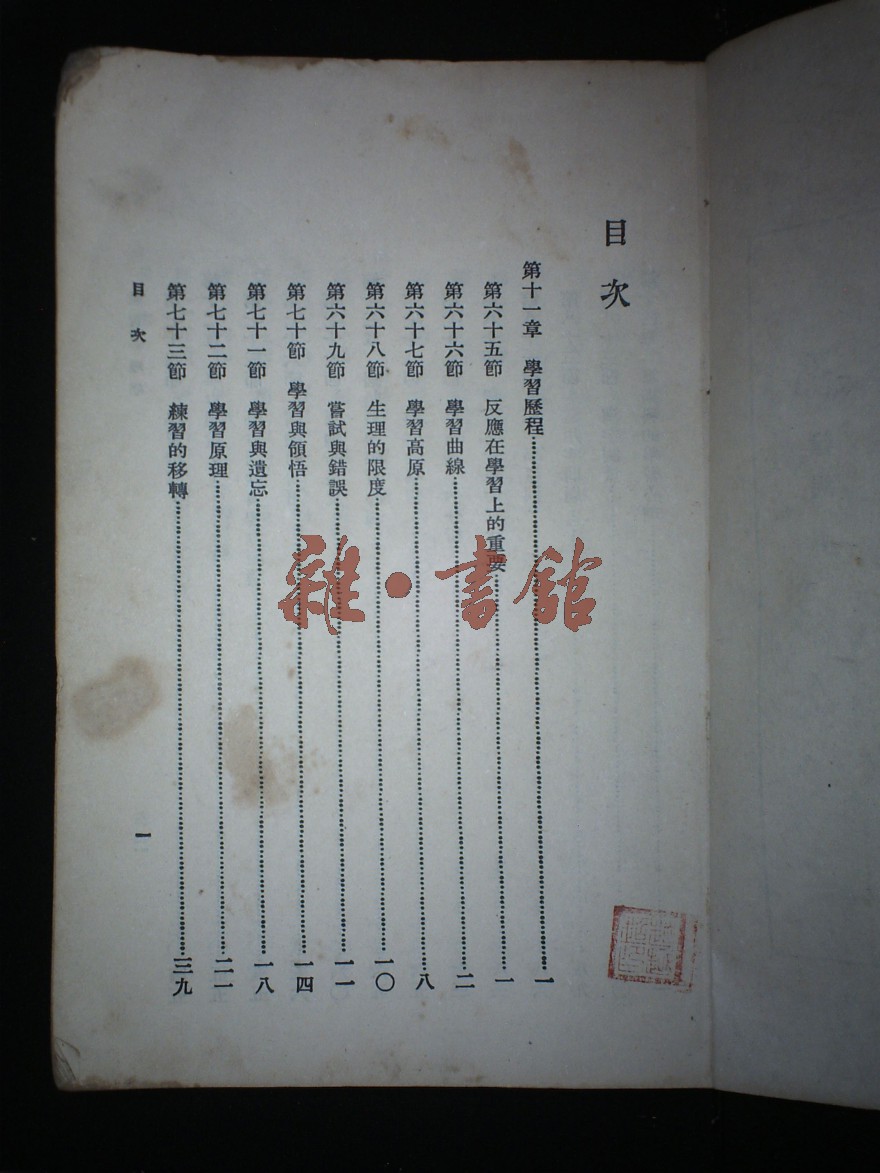 目次
第十一章 學習歷程……一
第六十五節 反應在學習上的重要……一
第六十六節 學習曲線……二
第六十七節 學習高原……八
第六十八節 生理的限度……一〇
第六十九節 嘗試與錯誤……一一
第七十節 學習與領悟……一四
第七十一節 學習與遺忘……一八
第七十二節 學習原理……二一
第七十三節 練習的移轉……三九
目次
一
雜·書館